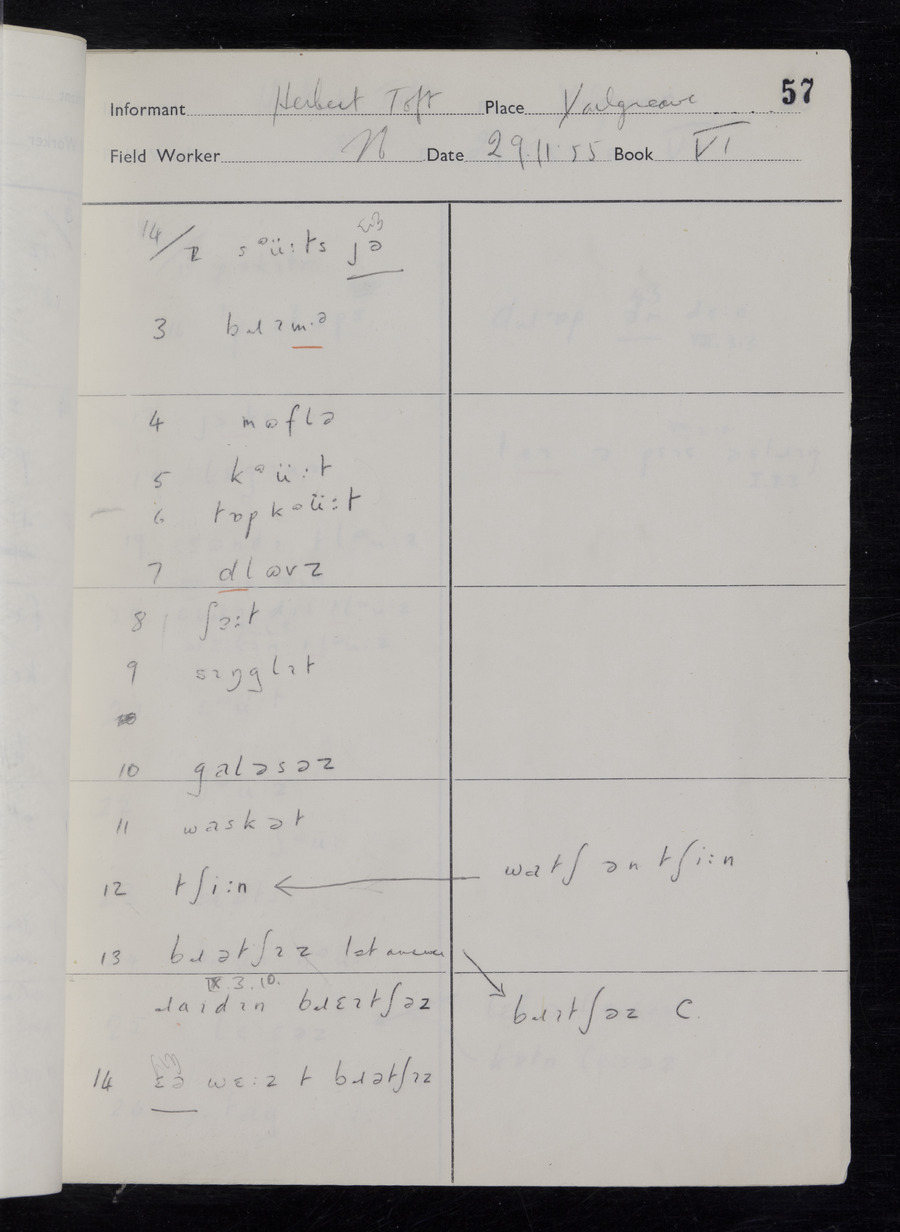 57
Informant Herbert Toft Place Youlgreave
Field Worker N Date 29.11.55 Book VI
14/2 sᵊü:ts ȷə
3 bɹɪʔm.ə
4 mɷflə
5 kᵊü:t
6 tɒpkəü:t
7 dlɷvz
8 ʃɜ:t
9 sɪŋglɪt
10 galəsəz
11 waskət
12 tʃi:n ← watʃ ən tʃi:n
13 bɹətʃɪz 1st answer
IX.3.10.
ɹaɪdɪn bɹɛɪtʃəz
bɹɪtʃəz C.
14 ɛə wɛ:z t bɹətʃɪz